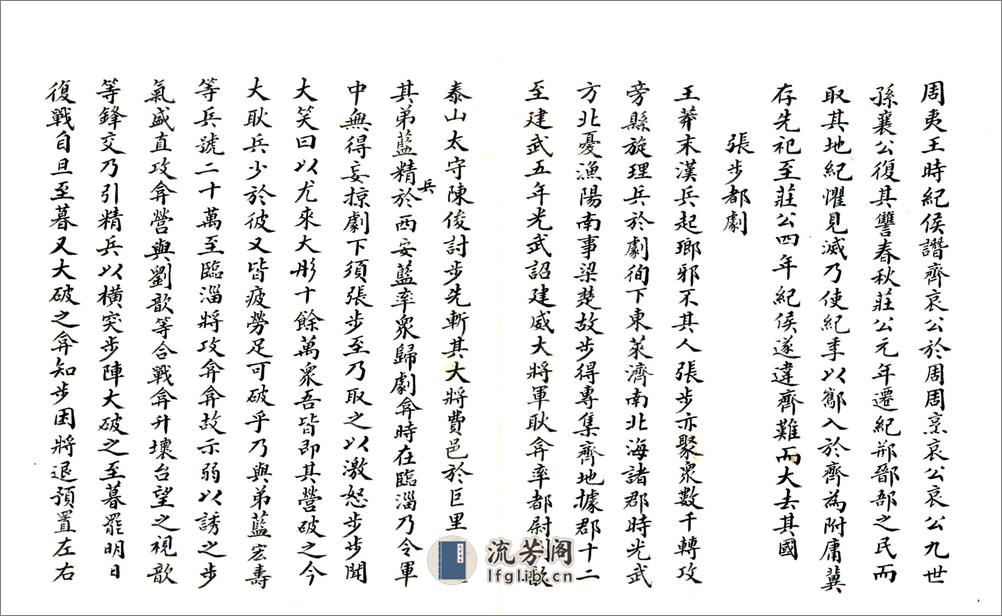 周夷王時紀侯譖齊哀公於周周烹哀公哀公九世
孫襄公復其讐春秋莊公元年遷紀郱鄑郚之民而
取其地紀懼見滅乃使紀季以酅入於齊為附庸冀
存先祀至莊公四年紀侯遂違齊難而大去其國
張步都劇
王莽末漢兵起瑯邪不其人張步亦聚衆數千轉攻
旁縣旋理兵於劇徇下東萊濟南北海諸郡時光武
方北憂漁陽南事梁楚故步得專集齊地據郡十二
至建武五年光武詔建威大將軍耿弇率都尉劉歆
泰山太守陳俊討步先斬其大將費邑於巨里
其弟藍精兵於西安藍率衆歸劇弇時在臨淄乃令軍
中無得妄掠劇下須張步至乃取之以激怒步步聞
大笑曰以尤來大彤十餘萬衆吾皆即其營破之今
大耿兵少於彼又皆疲勞足可破乎乃與弟藍宏壽
等兵號二十萬至臨淄將攻弇弇故示弱以誘之步
氣盛直攻弇營與劉歆等合戰弇升壞台望之視歆
等鋒交乃引精兵以橫突步陣大破之至暮罷明日
復戰自旦至暮又大破之弇知步困將退預置左右
流芳阁
lfglib.cn